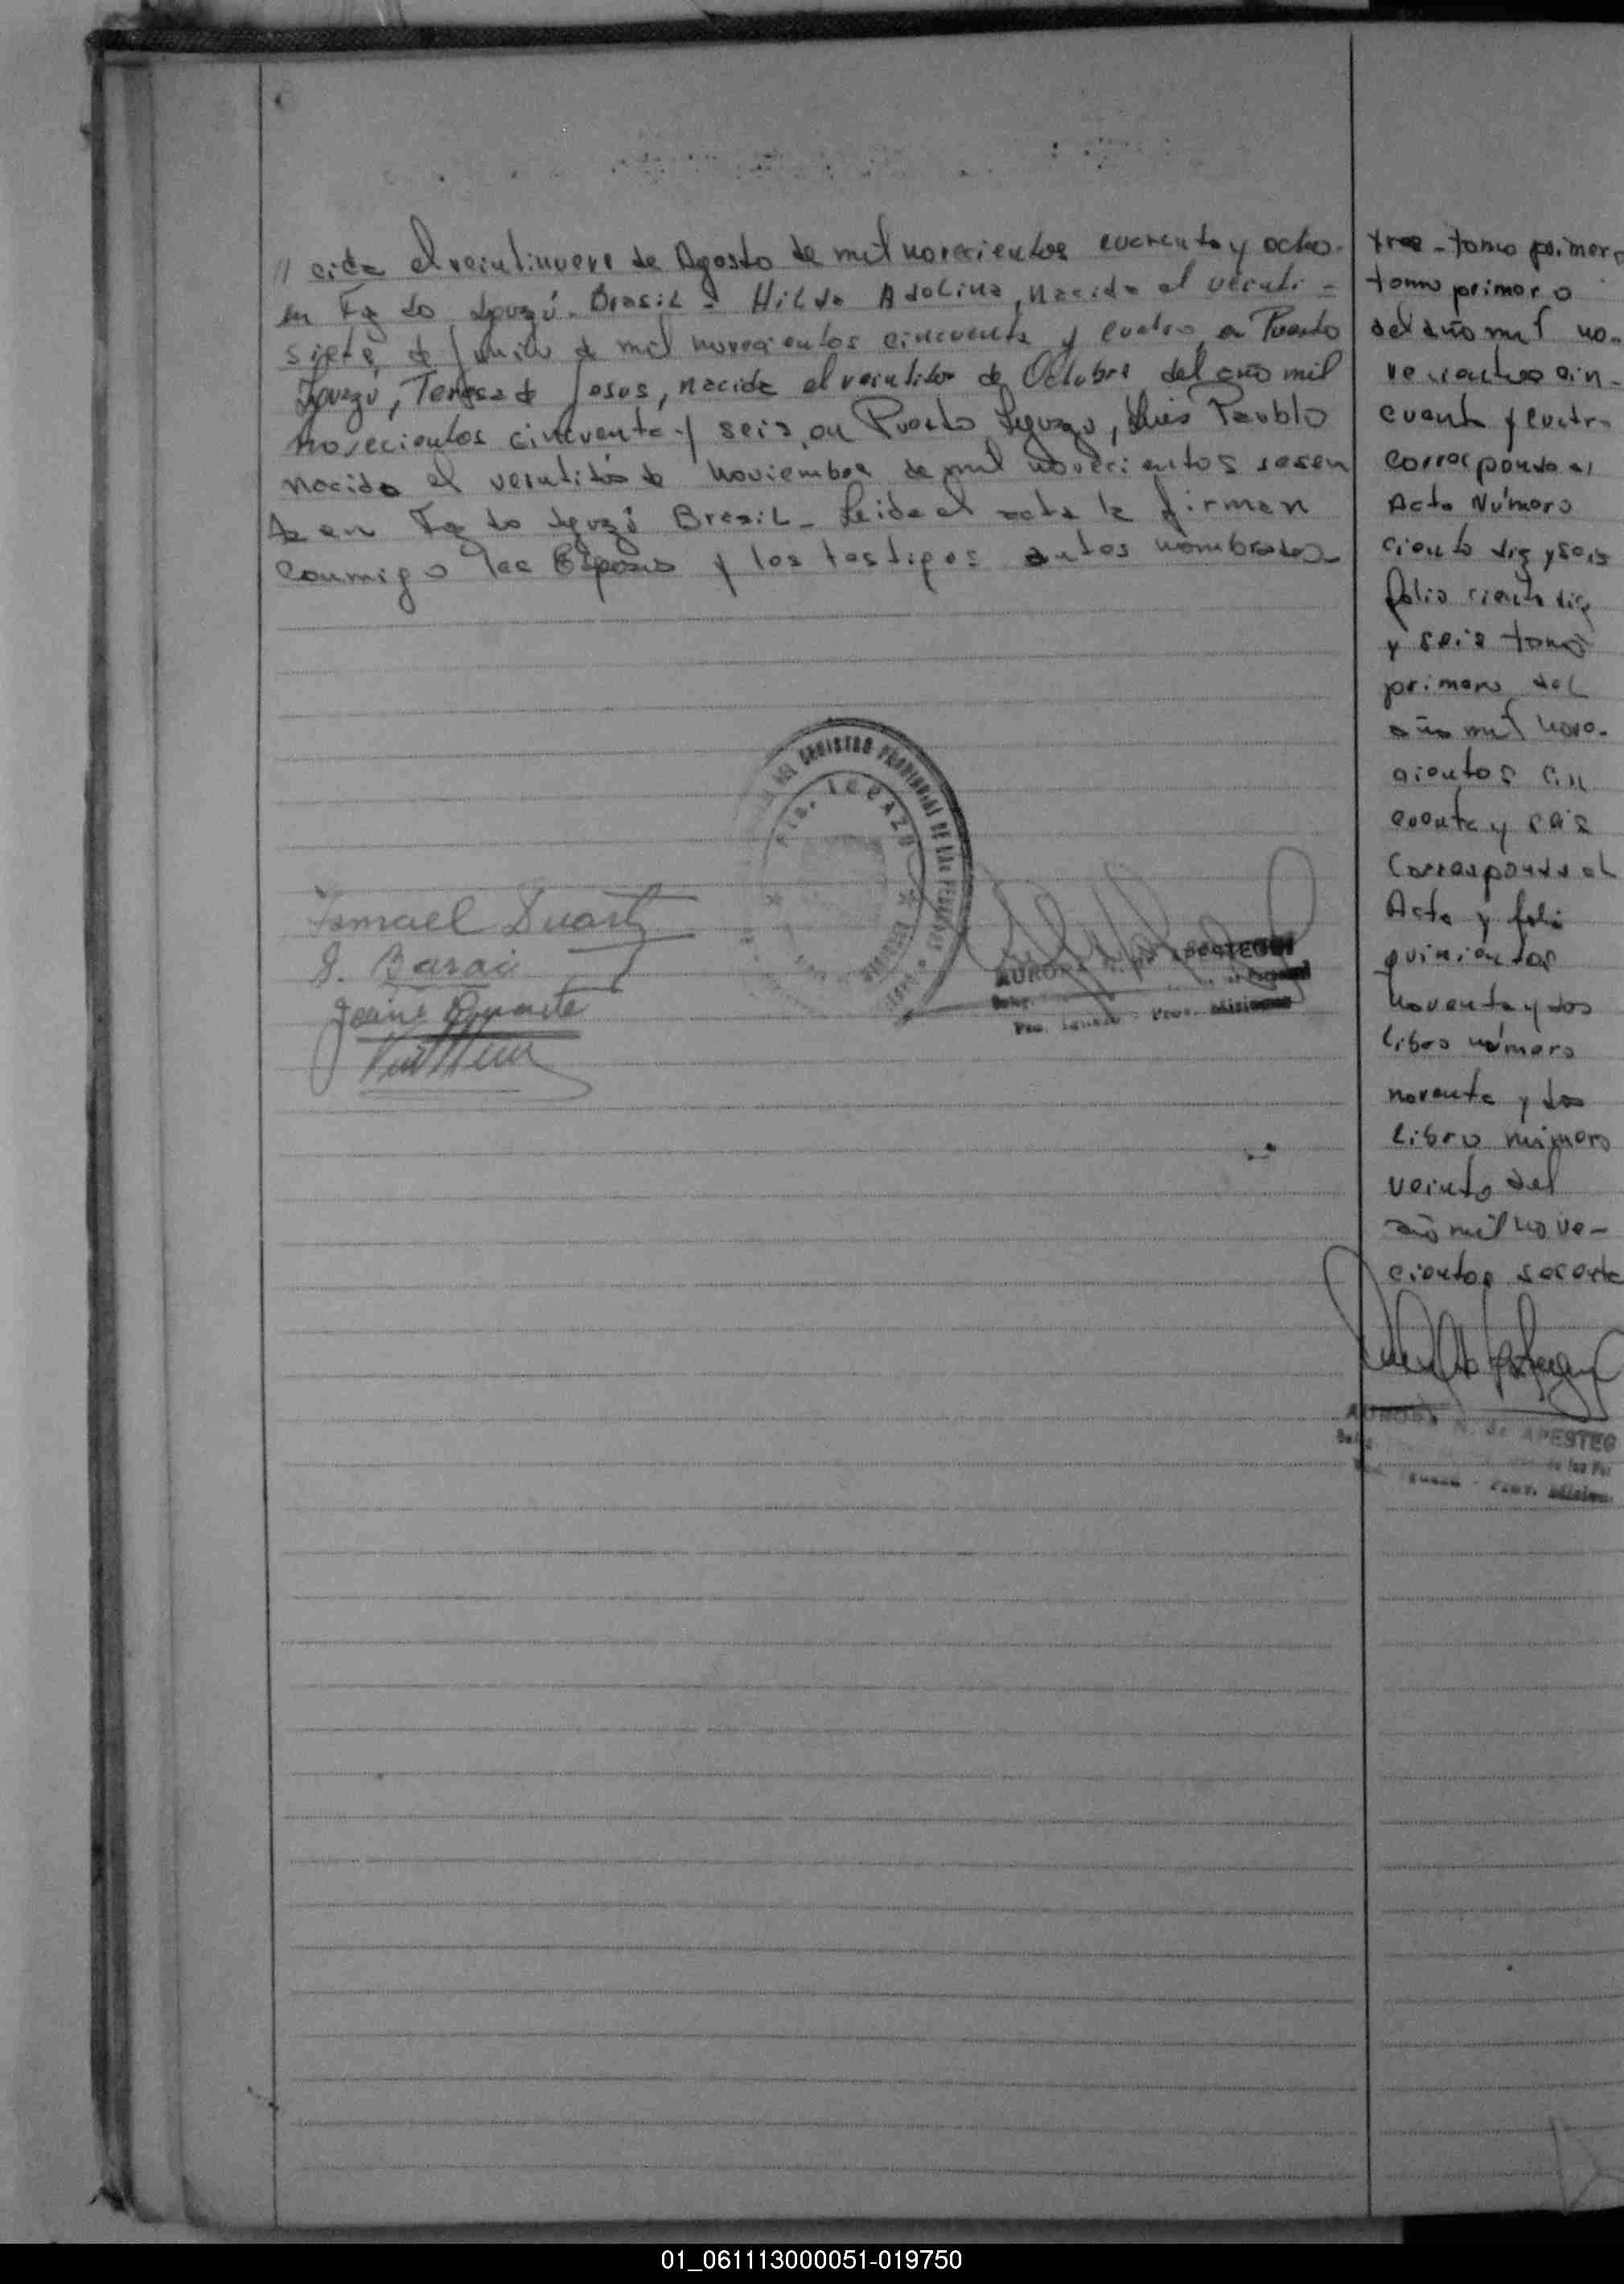 // cida el veintinueve de Agosto de mil novecientos cuarenta y ocho.
en Fg do Iguazú. Brasil - Hilda Adolina, nacida el veinti-
siete, de Junio de mil novecientos cincuenta y cuatro, en Puerto
Iguazú, Teresa de Jesus, nacida el veintidos de Octubre del año mil
novecientos cincuenta y seis, en Puerto Iguazu, Luis Pablo
nacido el veintidós de noviembre de mil novecientos sesen
ta en Fg do Iguazú Brasil - Leida el acta la firman
conmigo los Esposos y los testigos antes nombrados -
Ismael Duarte
J. Barai
AURORA de APESTEGUI
Pto. Iguazú - Prov. Misiones
DEL REGISTRO PROVINCIAL DE LAS PERSONAS
Pto. IGUAZU
MISIONES
tres - tomo primero
tomo primero
del año mil no-
vecientos cin-
cuenta y cuatro
corresponde al
Acta Número
ciento diez y seis
folio ciento diez
y seis tomo
primero del
año mil nove-
cientos cin
cuenta y seis
Corresponde al
Acta y folio
quinientos
noventa y dos
libro número
noventa y dos
libro número
veinte del
año mil nove-
cientos sesenta
AURORA N. de APESTEG
de las Per
Pto. Iguazú - Prov. Mision
01_061113000051-019750